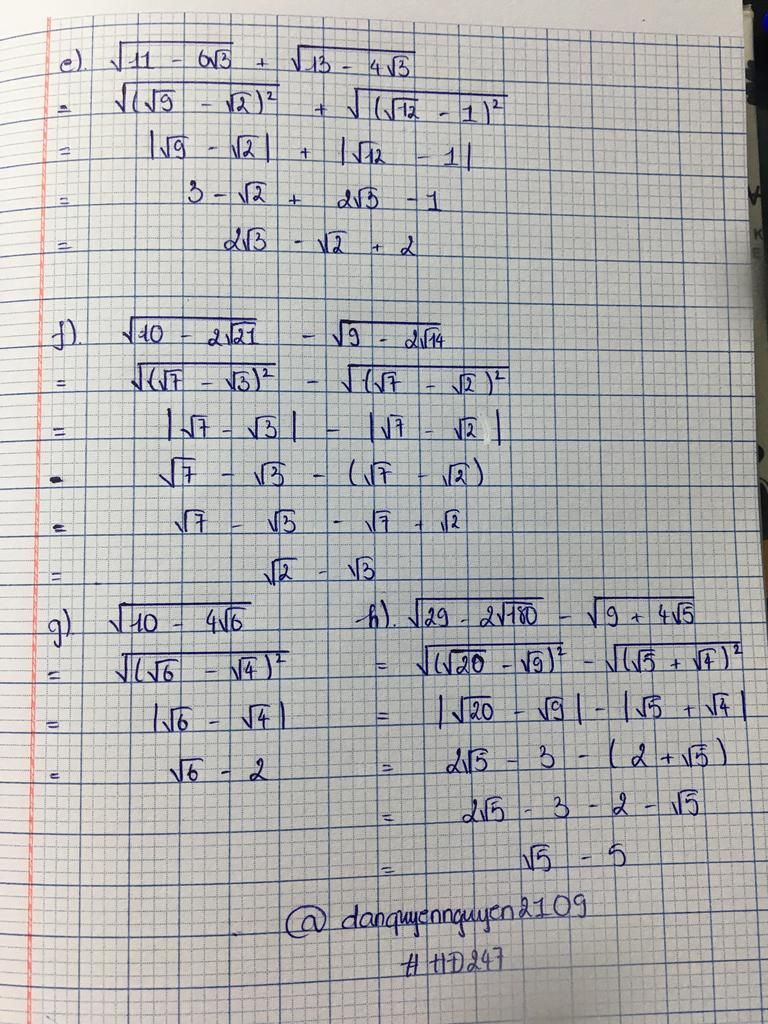 e). √(11 - 6√3) + √(13 - 4√3)
= √((√9 - √2)²) + √((√12 - 1)²)
= |√9 - √2| + |√12 - 1|
= 3 - √2 + 2√3 - 1
= 2√3 - √2 + 2
f). √(10 - 2√21) - √(9 - 2√14)
= √((√7 - √3)²) - √((√7 - √2)²)
= |√7 - √3| - |√7 - √2|
= √7 - √3 - (√7 - √2)
= √7 - √3 - √7 + √2
= √2 - √3
g) √(10 - 4√6)
= √((√6 - √4)²)
= |√6 - √4|
= √6 - 2
h). √(29 - 2√180) - √(9 + 4√5)
= √((√20 - √9)²) - √((√5 + √4)²)
= |√20 - √9| - |√5 + √4|
= 2√5 - 3 - (2 + √5)
= 2√5 - 3 - 2 - √5
= √5 - 5
@ danquyennguyen2109
# HD247